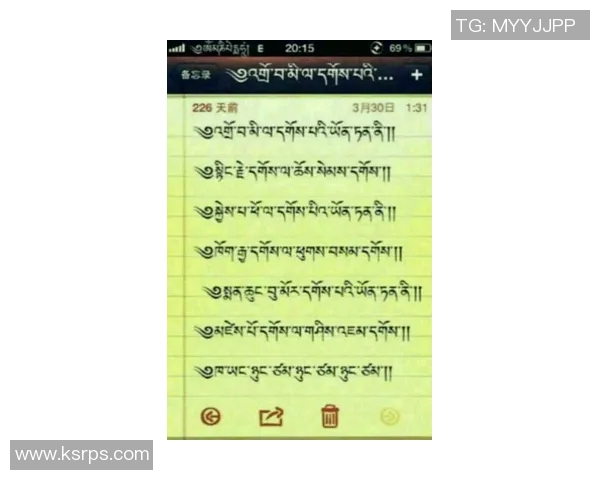 TG: MYYJJPP
༄ཨོཾ་མ་ཎི་པདྨེ་ཧཱུྃ། E 20:15 69%
备忘录 ༄འགྲོ་བ་མི་ལ་དགོས་པའི་... +
226 天前 3月30日 1:31
༄འགྲོ་བ་མི་ལ་དགོས་པའི་ཡོན་ཏན་ནི།།
༄སྙིང་རྗེ་དགོས་ལ་ཆོས་སེམས་དགོས།།
༄སྐྱེས་པ་ཕོ་ལ་དགོས་པིའ་ཡོན་ཏན་ནི།།
༄ཁོག་རྒྱ་དགོས་ལ་ཕུགས་བསམ་དགོས།།
༄སྨན་ཆུང་བུ་མོར་དགོས་པའི་ཡོན་ཏན་ནི།།
༄མཛེས་པོ་དགོས་ལ་གཤིས་འཇམ་དགོས།།
༄ཁ་ཡང་ཉུང་ཙམ་ཉུང་ཙམ་ཉུང་ཙམ།།
www.ksrps.com